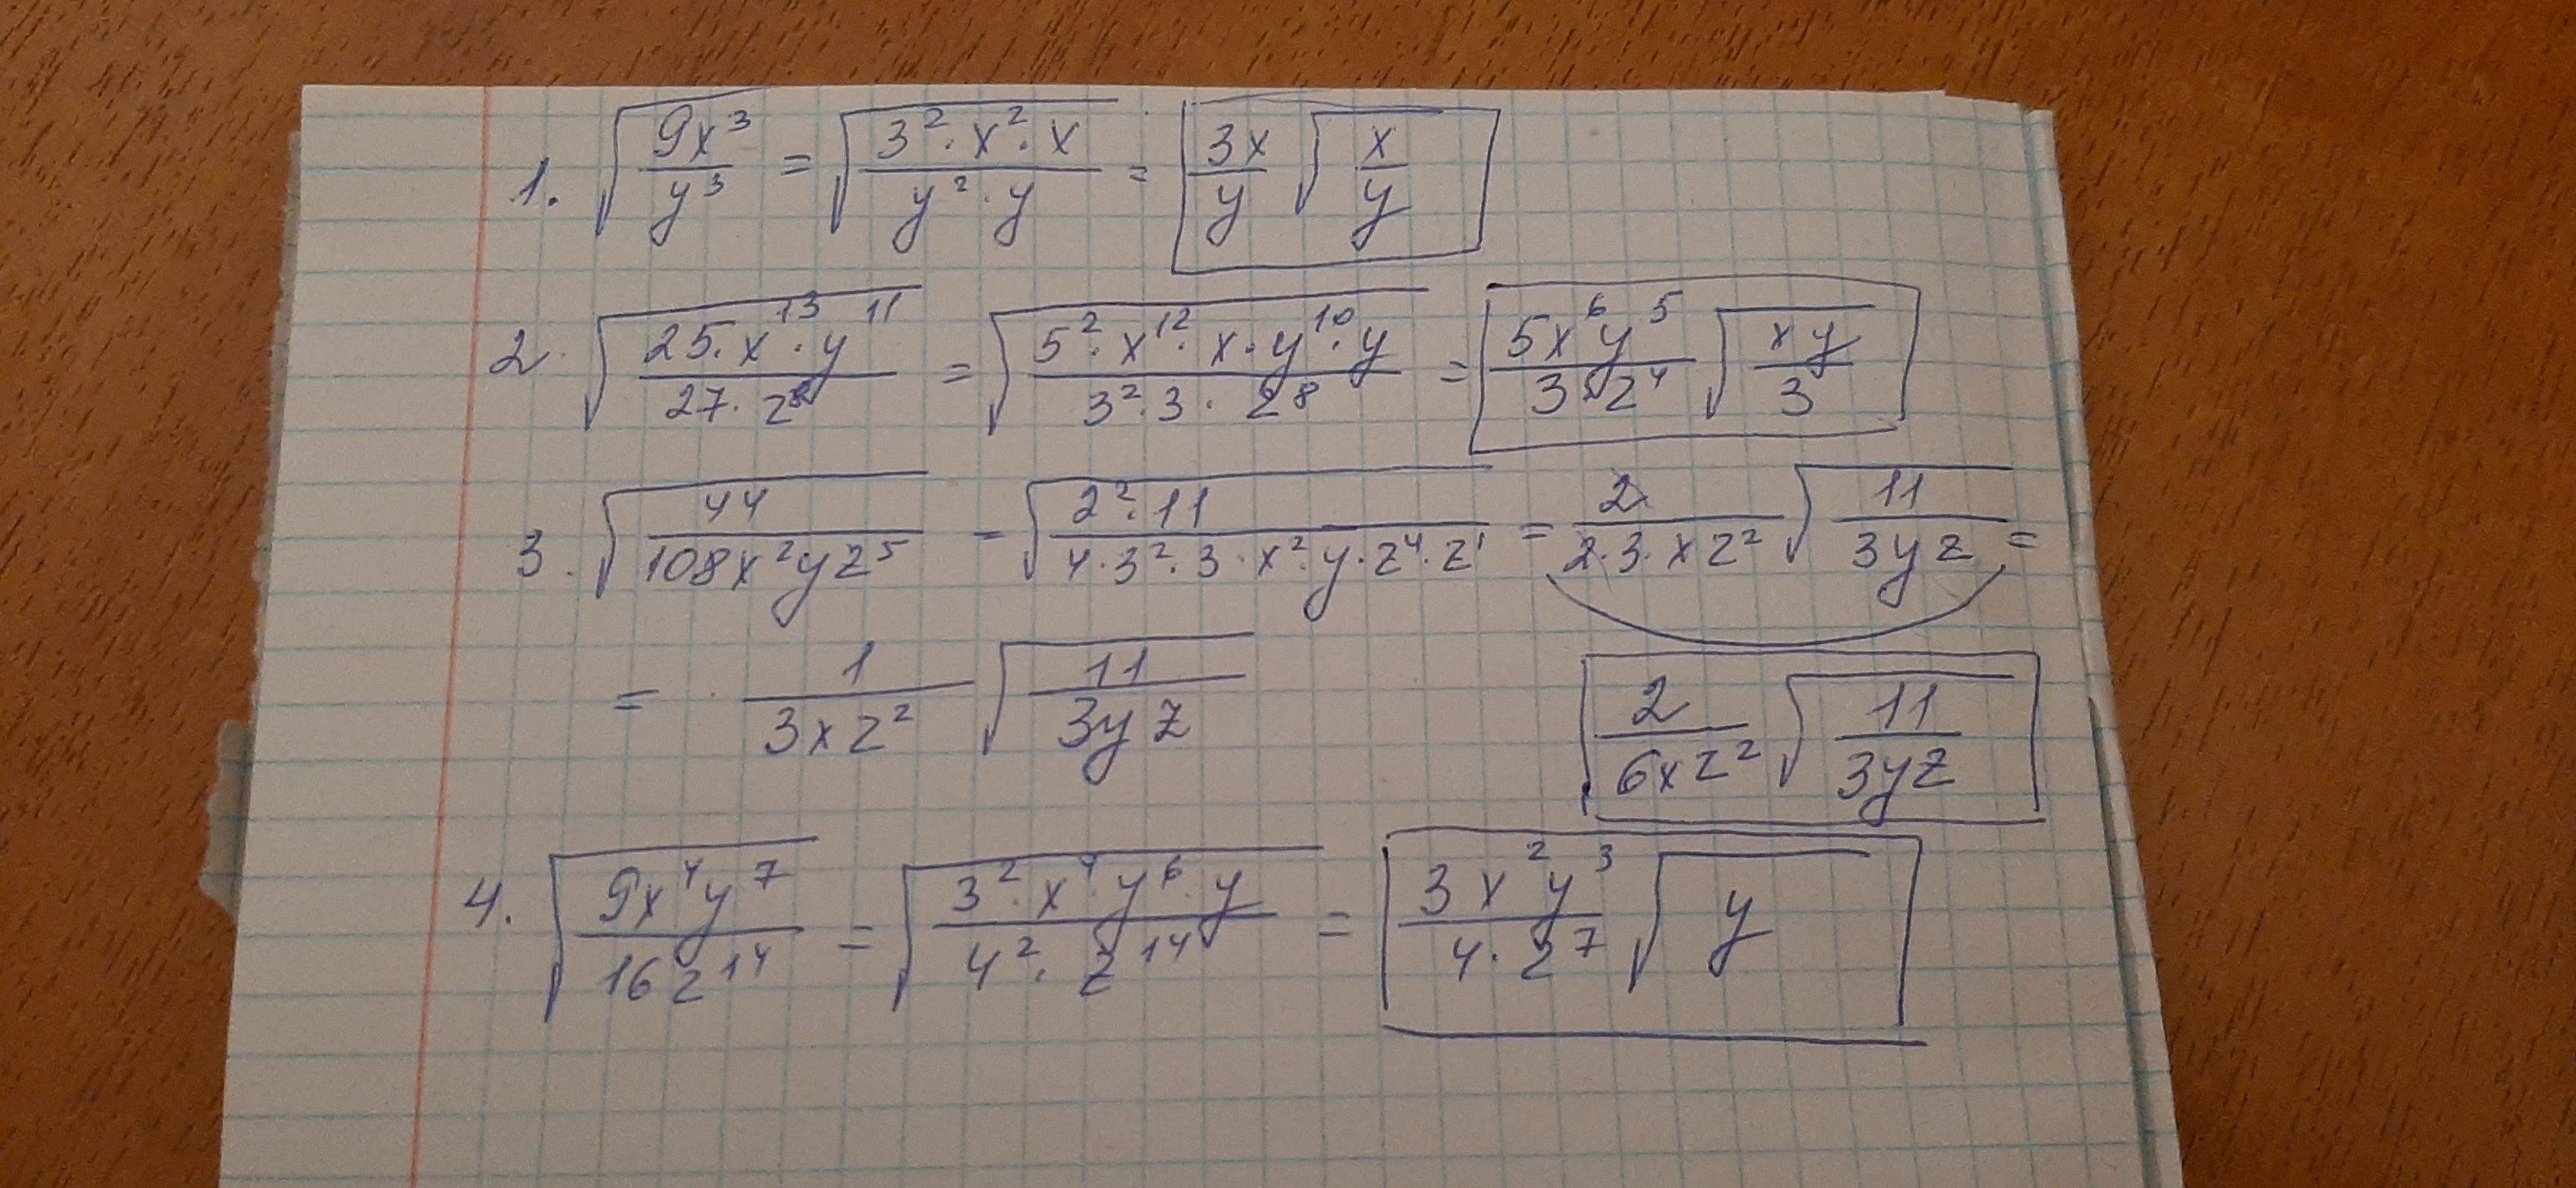 1. √(9x³/y³) = √(3²·x²·x/y²·y) = 3x/y √(x/y)
2. √(25·x¹³·y¹¹/27·z⁸) = √(5²·x¹²·x·y¹⁰·y/3²·3·z⁸) = 5x⁶y⁵/3·z⁴ √(xy/3)
3. √(44/108x²yz⁵) = √(2²·11/4·3²·3·x²·y·z⁴·z¹) = 2/2·3·xz² √(11/3yz) =
= 1/3xz² √(11/3yz) 2/6xz² √(11/3yz)
4. √(9x⁴y⁷/16z¹⁴) = √(3²·x⁴·y⁶·y/4²·z¹⁴) = 3x²y³/4·z⁷ √y